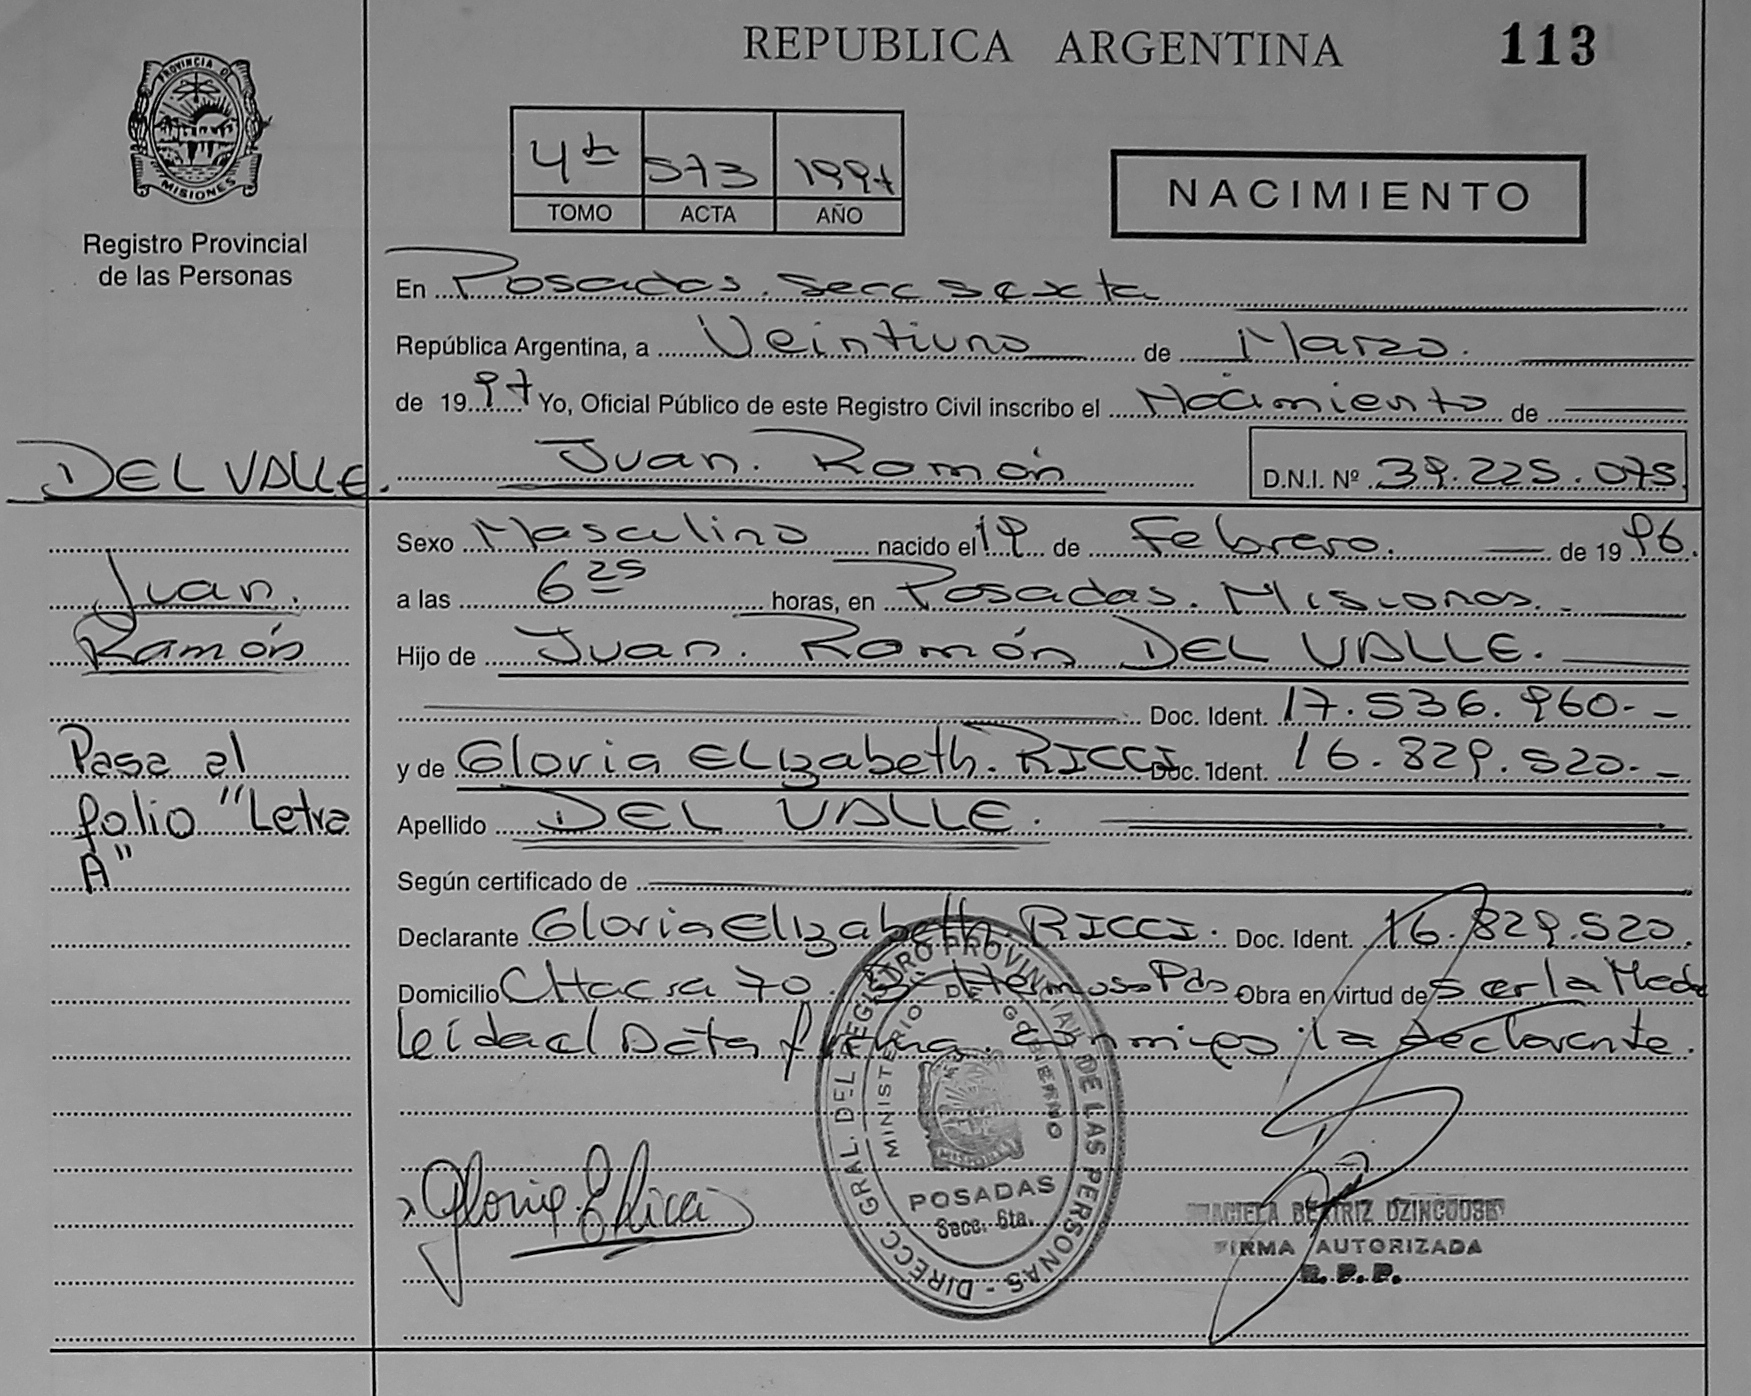 REPUBLICA ARGENTINA
113
PROVINCIA DE MISIONES
Registro Provincial
de las Personas
4to 573 1997
TOMO ACTA AÑO
NACIMIENTO
En Posadas. Secc sexta
República Argentina, a Veintiuno de Marzo.
de 1997 Yo, Oficial Público de este Registro Civil inscribo el Nacimiento de
Juan. Ramón D.N.I. Nº 39.225.075
DEL VALLE.
Juan.
Ramón
Pasa al
folio "Letra
A"
Sexo Masculino nacido el 19 de Febrero. de 1996.
a las 6 25 horas, en Posadas. Misiones.
Hijo de Juan. Ramón DEL VALLE.
Doc. Ident. 17.536.960.-
y de Gloria ELizabeth. RICCI. Doc. Ident. 16.829.520.-
Apellido DEL VALLE.
Según certificado de
Declarante Gloria Elizabeth. RICCI. Doc. Ident. 16.829.520.
Domicilio CHacra 70. Hermoso Pdas Obra en virtud de ser la Madre
leída el Acta firma conmigo la declarante.
Gloria E Ricci
DIRECC. GRAL. DEL REGISTRO PROVINCIAL DE LAS PERSONAS -
MINISTERIO DE GOBIERNO
MISIONES
POSADAS
Secc. 6ta.
GRACIELA BEATRIZ
FIRMA AUTORIZADA
R.P.P.